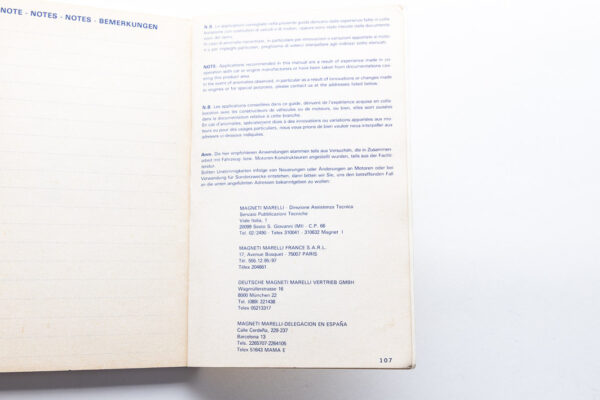 NOTE - NOTES - NOTES - BEMERKUNGEN
N.B. Le applicazioni consigliate nella presente guida derivano dalle esperienze fatte in colla-
borazione con costruttori di veicoli o di motori, oppure sono state rilevate dalla documenta-
zione del ramo.
In caso di anomalie riscontrate, in particolare per innovazioni o variazioni apportate ai motori
o per impieghi particolari, preghiamo di volerci interpellare agli indirizzi sotto elencati.
NOTE- Applications recommended in this manual are a result of experience made in co-
operation with car or engine manufacturers or have been taken from documentations cov-
ering this product area.
In the event of anomalies observed, in particular as a result of innovations or changes made
to engines or for special purposes, please contact us at the addresses listed below.
N.B. Les applications conseillées dans ce guide, dérivent de l'expérience acquise en colla-
boration avec les constructeurs de véhicules ou de moteurs, ou bien, elles sont puisées
dans la documentation relative à cette branche.
En cas d'anomalies, spécialement dues à des innovations ou variations apportées aux mo-
teurs ou pour des usages particuliers, nous vous prions de bien vouloir nous interpeller aux
adresses ci-dessous indiquées.
Anm. Die hier empfohlenen Anwendungen stammen teils aus Versuchen, die in Zusammen-
arbeit mit Fahrzeug- bzw. Motoren-Konstrukteuren angestellt wurden, teils aus der Fachli-
teratur.
Sollten Unstimmigkeiten infolge von Neuerungen oder Änderungen an Motoren oder bei
Verwendung für Sonderzwecke entstehen, dann bitten wir Sie, uns den betreffenden Fall
an die unten angeführten Adressen bekanntgeben zu wollen.
MAGNETI MARELLI - Direzione Assistenza Tecnica
Servizio Pubblicazioni Tecniche
Viale Italia, 1
20099 Sesto S. Giovanni (MI) - C.P. 68
Tel. 02/2490 - Telex 310041 - 310632 Magnet I
MAGNETI MARELLI FRANCE S.A.R.L.
17, Avenue Bosquet - 75007 PARIS
Tél. 555.12.95/97
Télex 204661
DEUTSCHE MAGNETI MARELLI VERTRIEB GMBH
Wagmüllerstrasse 16
8000 München 22
Tel. (089) 221438
Telex 05213317
MAGNETI MARELLI-DELEGACION EN ESPAÑA
Calle Cerdeña, 229-237
Barcelona 13
Tels. 2265707-2264105
Telex 51643 MAMA E
107